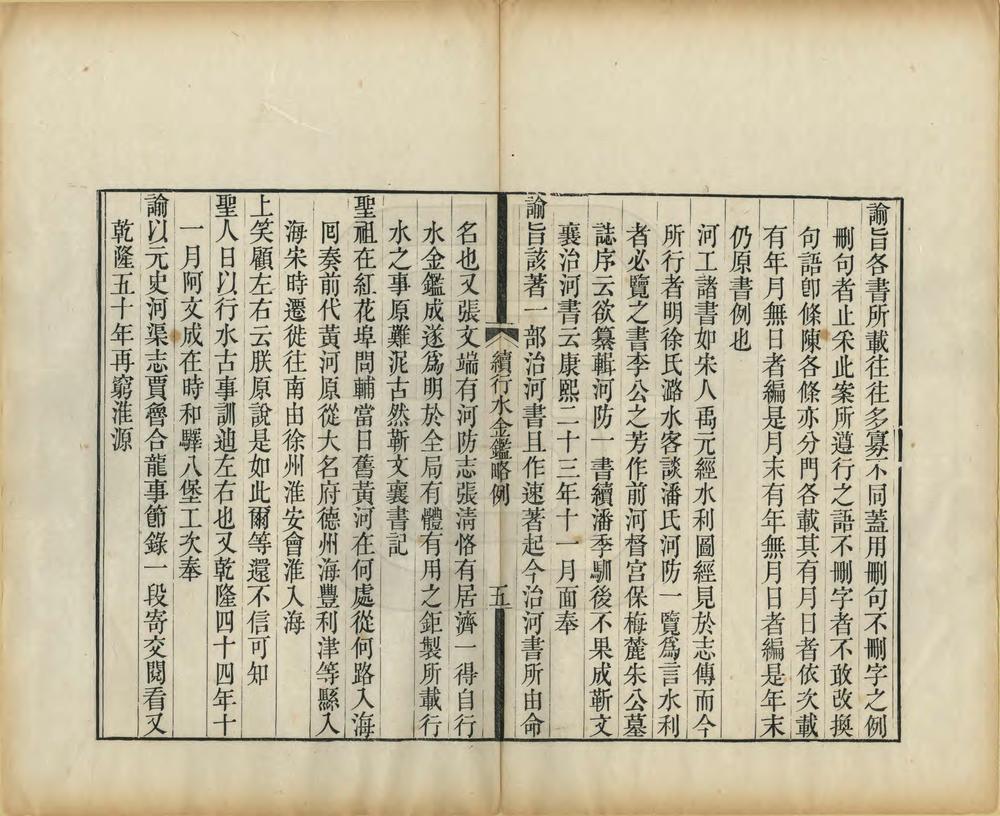 諭旨各書所載往往多寡不同蓋用刪句不刪字之例
刪句者止采此案所遵行之語不刪字者不敢改換
句語卽條陳各條亦分門各載其有月日者依次載
有年月無日者編是月末有年無月日者編是年末
仍原書例也
河工諸書如宋人禹元經水利圖經見於志傳而今
所行者明徐氏潞水客談潘氏河防一覽爲言水利
者必覽之書李公之芳作前河督宮保梅麓朱公墓
誌序云欲纂輯河防一書續潘季馴後不果成靳文
襄治河書云康熙二十三年十一月面奉
諭旨該著一部治河書且作速著起今治河書所由命
續行水金鑑略例
五
名也又張文端有河防志張淸恪有居濟一得自行
水金鑑成遂爲明於全局有體有用之鉅製所載行
水之事原難泥古然靳文襄書記
聖祖在紅花埠問輔當日舊黃河在何處從何路入海
囘奏前代黃河原從大名府德州海豐利津等縣入
海宋時遷徙往南由徐州淮安會淮入海
上笑顧左右云朕原說是如此爾等還不信可知
聖人日以行水古事訓迪左右也又乾隆四十四年十
一月阿文成在時和驛八堡工次奉
諭以元史河渠志賈魯合龍事節錄一段寄交閱看又
乾隆五十年再窮淮源